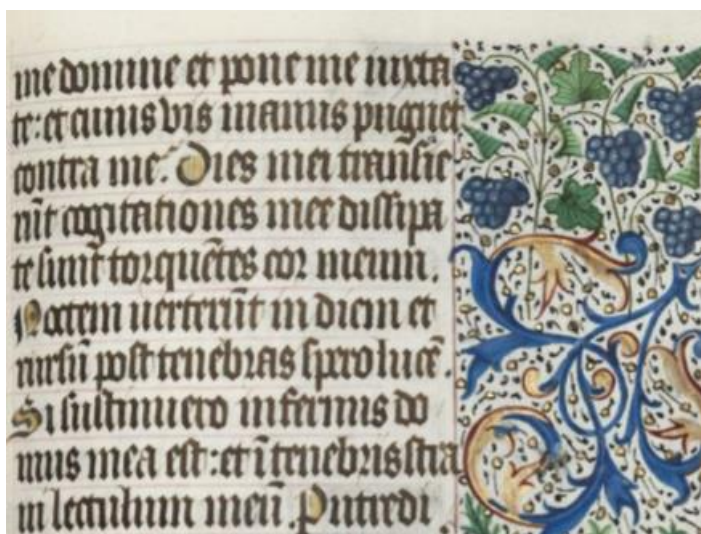 me domine et pone me iuxta
te: et cuiusvis manus pugnet
contra me. Dies mei transie
rūt cogitationes mee dissipa
te sunt torquētes cor meum.
Noctem uerterūt in diem et
rursū post tenebras spero lucē.
Si sustinuero infernus do
mus mea est: et ī tenebris stra
ui lectulum meū. Putredi